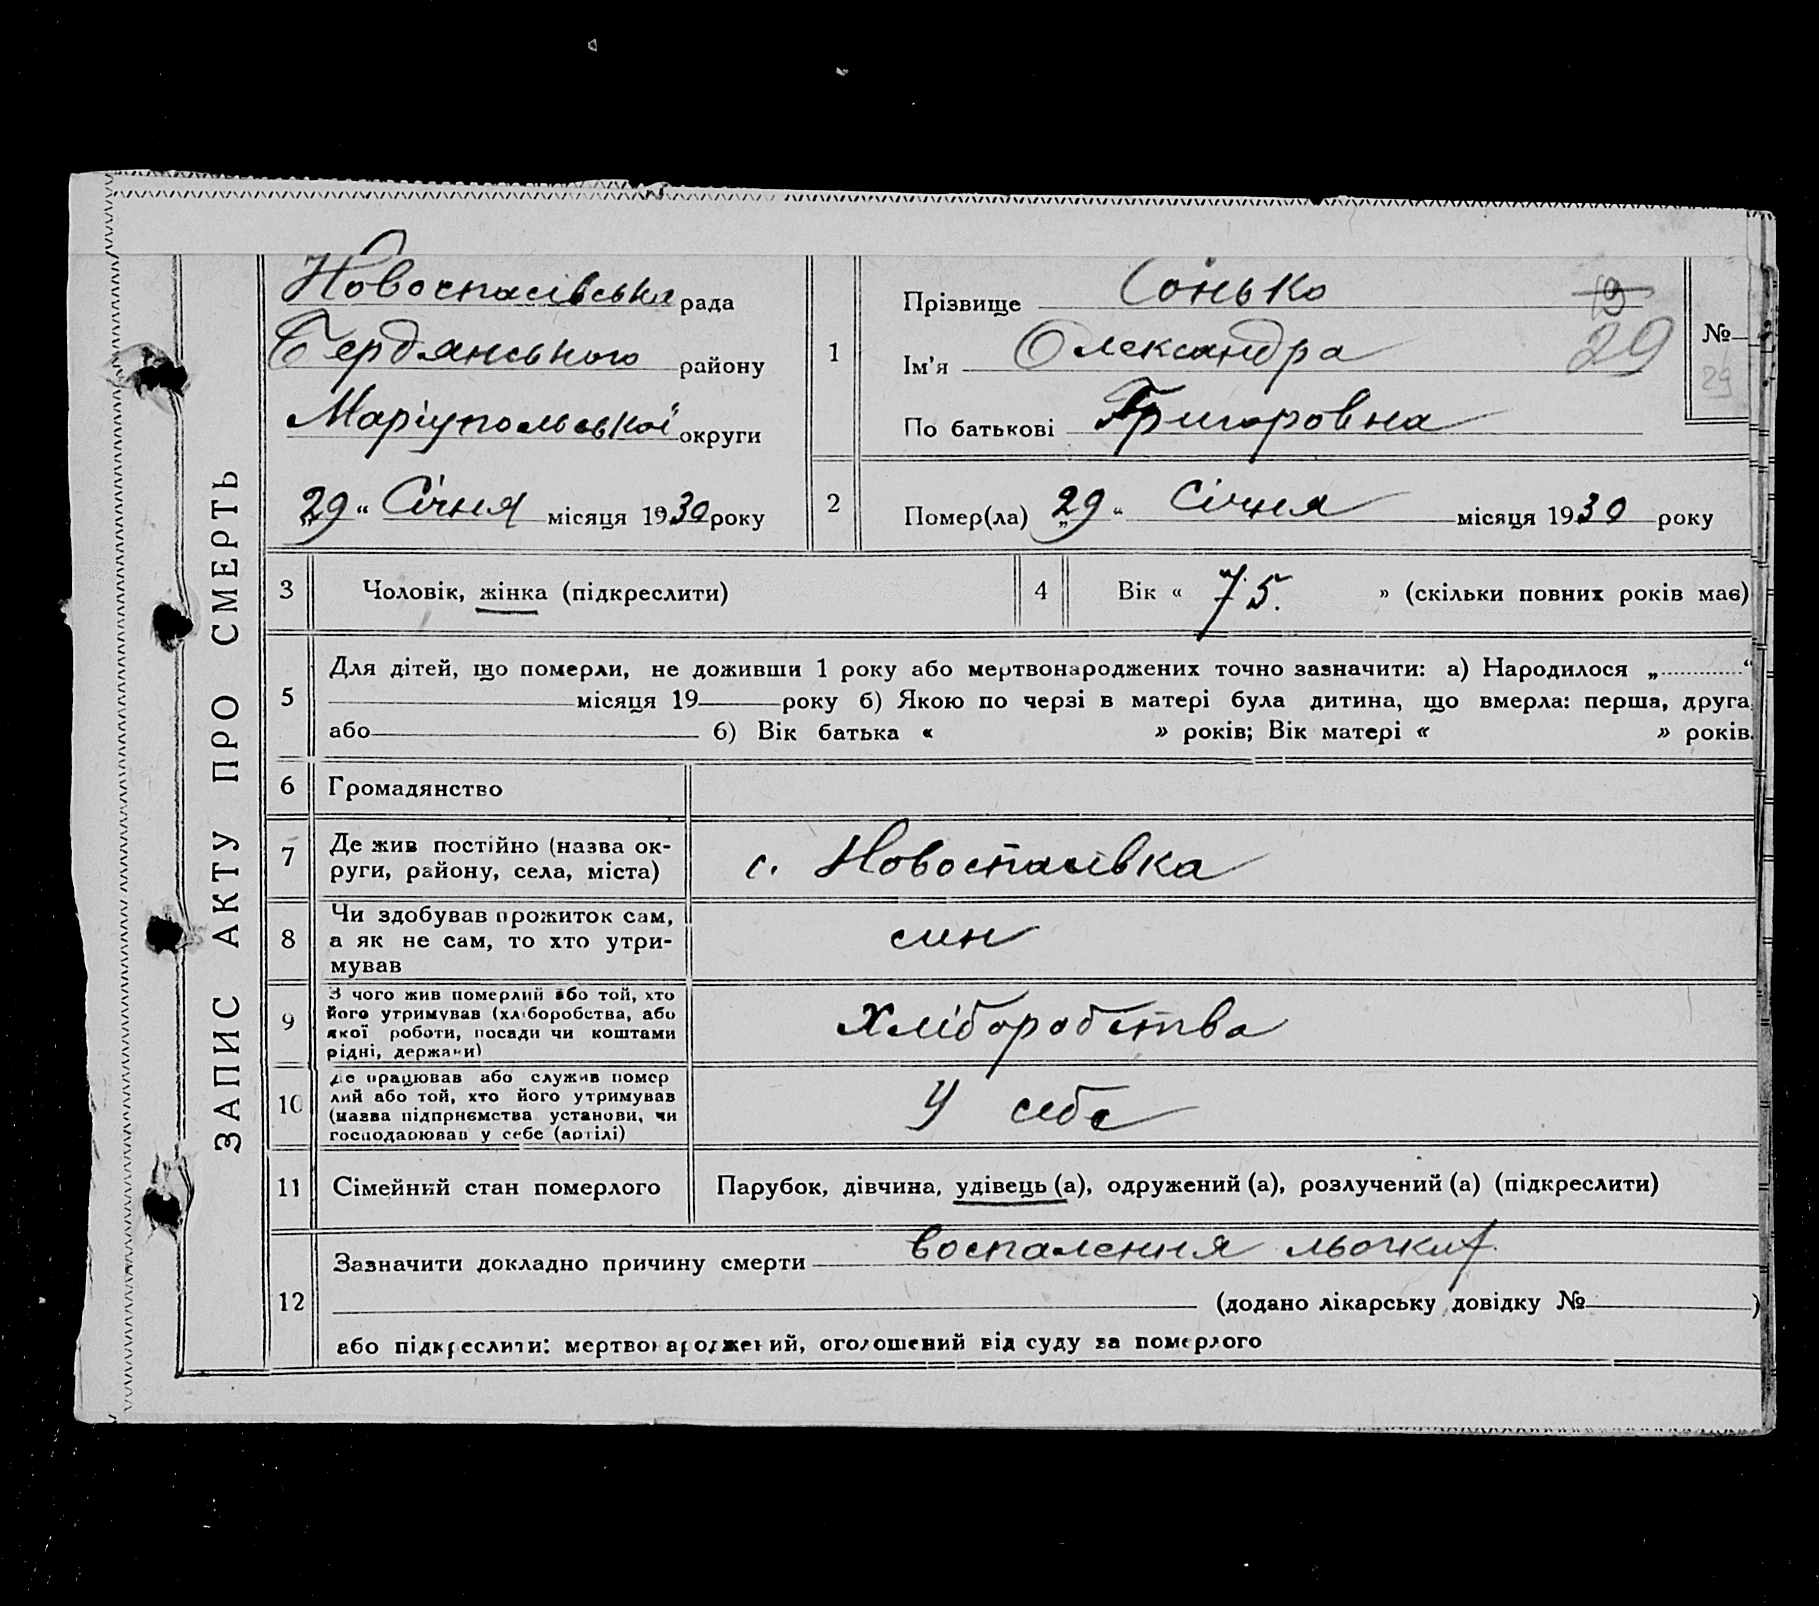 ЗАПИС АКТУ ПРО СМЕРТЬ
Новоспасівська рада
Бердянського району
Маріупольської округи
„29“ Січня місяця 1930 року
1
Прізвище Сонько
Ім'я Олександра
По батькові Григоровна
19
29
№
29
2
Помер(ла) „29“ Січня місяця 1930 року
3 Чоловік, жінка (підкреслити)
4 Вік « 75. » (скільки повних років має)
5
Для дітей, що померли, не доживши 1 року або мертвонароджених точно зазначити: а) Народилося „ “
місяця 19 року б) Якою по черзі в матері була дитина, що вмерла: перша, друга,
або б) Вік батька « » років; Вік матері « » років.
6 Громадянство
7 Де жив постійно (назва ок-
руги, району, села, міста)
с. Новоспасівка
8 Чи здобував прожиток сам,
а як не сам, то хто утри-
мував
син
9 З чого жив померлий або той, хто
його утримував (хліборобства, або
якої роботи, посади чи коштами
рідні, держави)
Хліборобства
10 Де працював або служив помер
лий або той, хто його утримував
(назва підприємства установи, чи
господарював у себе (артілі)
У себе
11 Сімейний стан померлого
Парубок, дівчина, удівець (а), одружений (а), розлучений (а) (підкреслити)
12
Зазначити докладно причину смерти воспалення льочких
(додано лікарську довідку № )
або підкреслити: мертвонароджений, оголошений від суду за померлого